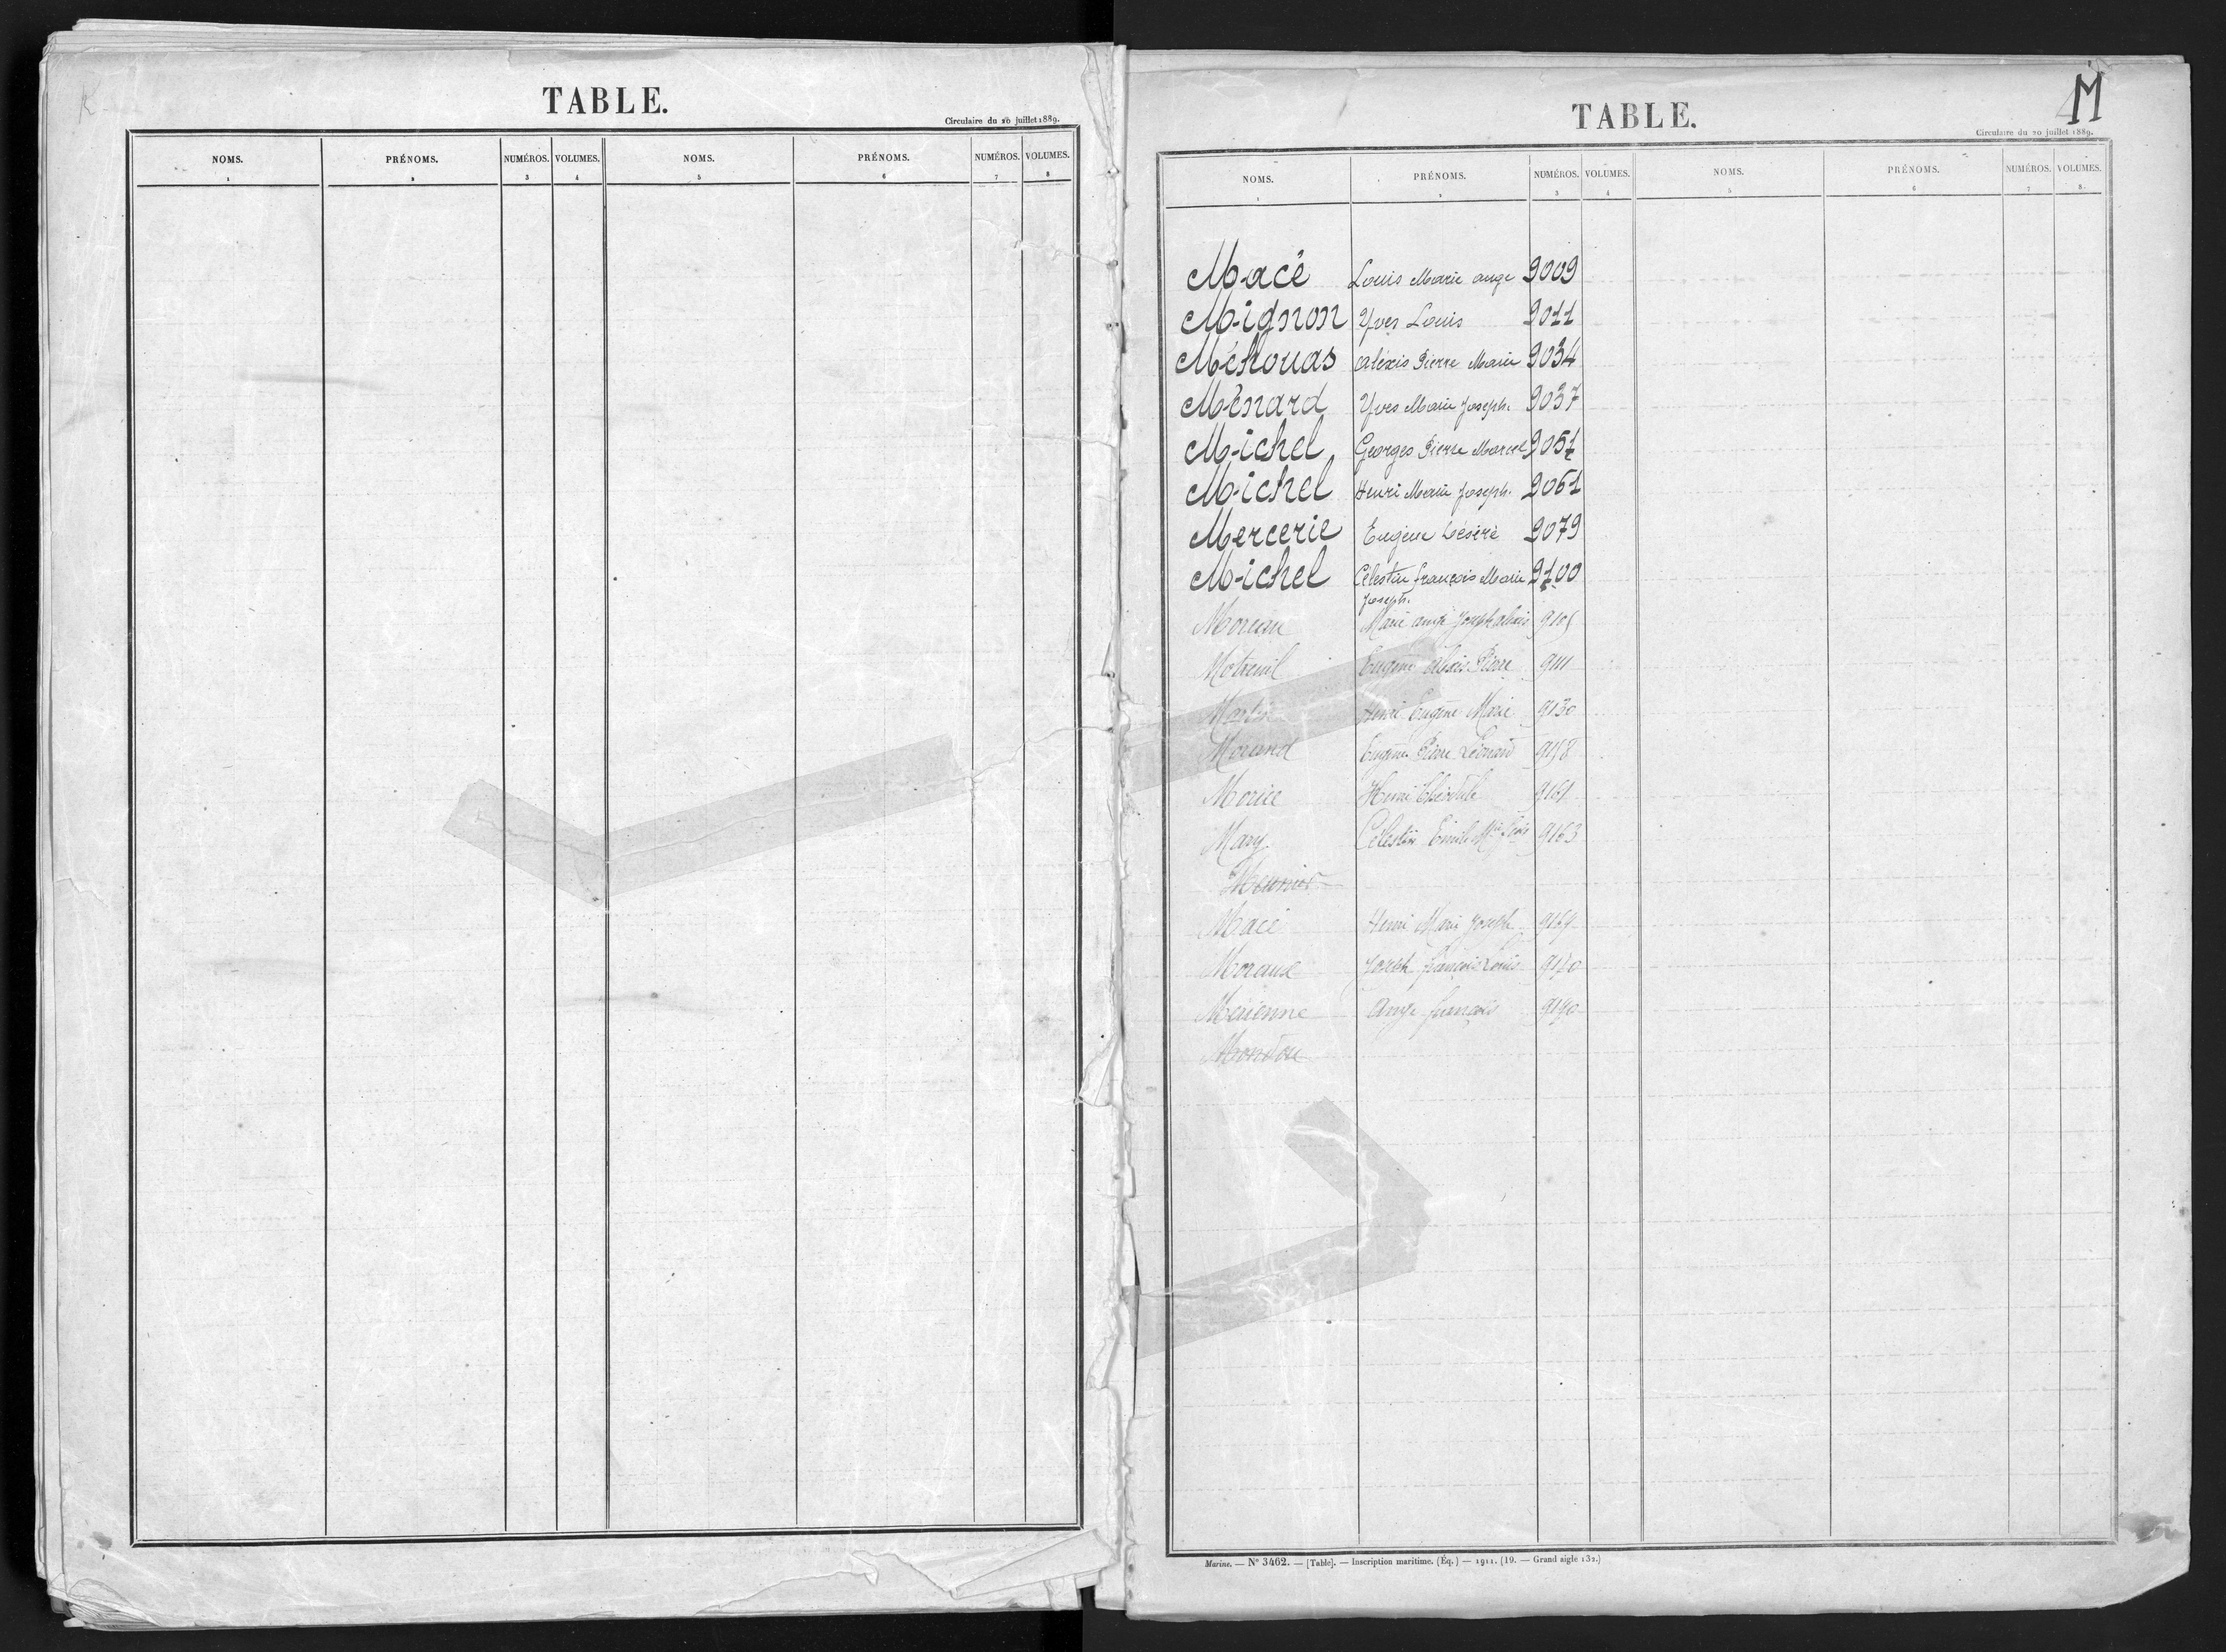 TABLE.
Circulaire du 20 juillet 1889.
NOMS. PRÉNOMS. NUMÉROS. VOLUMES. NOMS. PRÉNOMS. NUMÉROS. VOLUMES.
1 2 3 4 5 6 7 8
M
TABLE.
Circulaire du 20 juillet 1889.
NOMS. PRÉNOMS. NUMÉROS. VOLUMES. NOMS. PRÉNOMS. NUMÉROS. VOLUMES.
1 2 3 4 5 6 7 8
Macé Louis Marie ange 9009
Mignon Yves Louis 9011
Méhouas aléxis Pierre Marie 9034
Ménard Yves Marie Joseph. 9037
Michel Georges Pierre Marcel 9051
Michel Henri Marie Joseph. 9061
Mercerie Eugène Désiré 9079
Michel Célestin françois Marie 9100
Joseph.
Moreau Marie ange Joseph
Motreuil Eugène Pierre 9111
Martin Henri Eugène Marie 9130
Eugène Pierre Léonard
Morice Henri 9161
Mary Célestin Emile 9163
Meunier
Macé Henri Marie Joseph 9169
Joseph françois Louis
Merienne Ange françois 9190
Mondou
Marine. — N° 3462. — [Table]. — Inscription maritime. (Éq.) — 1911. (19. — Grand aigle 132.)